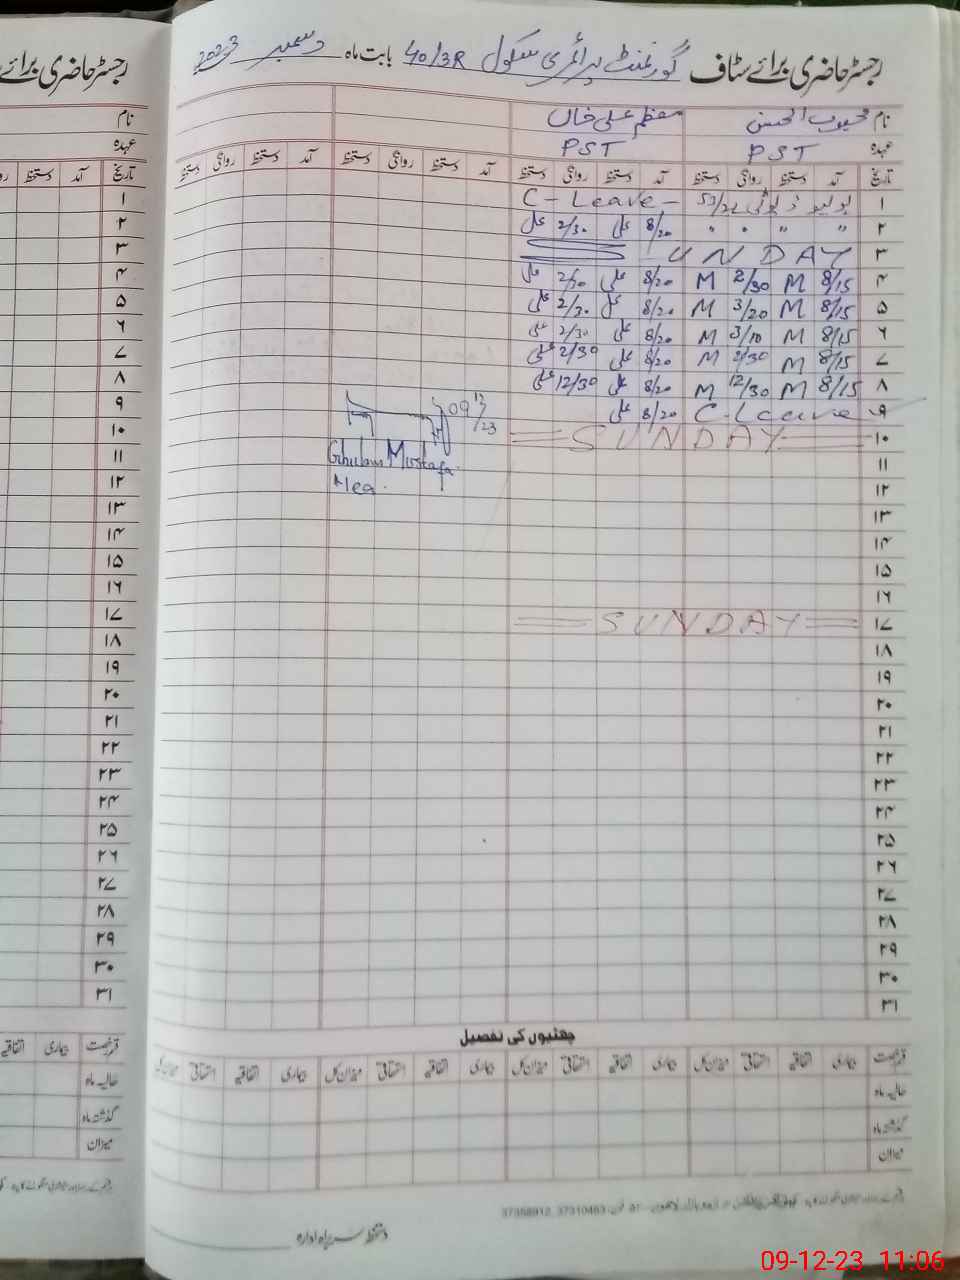 رجسٹر حاضری برائے سٹاف گورنمنٹ پرائمری سکول 40/3R بابت ماہ دسمبر 2023
نام محبوب الحسن معظم علی خاں
عہدہ PST PST
تاریخ آمد دستخط روانگی دستخط آمد دستخط روانگی دستخط آمد دستخط روانگی دستخط آمد دستخط روانگی دستخط
۱ پولیو ڈیوٹی C- Leave -
۲ " " " " 8/20 علی 2/30 علی
۳ SUNDAY
۴ 8/15 M 2/30 M 8/20 علی 2/30 علی
۵ 8/15 M 3/20 M 8/20 علی 2/30 علی
۶ 8/15 M 3/10 M 8/20 علی 2/30 علی
۷ 8/15 M 2/30 M 8/20 علی 2/30 علی
۸ 8/15 M 12/30 M 8/20 علی 12/30 علی
۹ C-Leave 8/20 علی
09 12/23
۱۰ SUNDAY
Ghulam Mustafa
Mea.
۱۱
۱۲
۱۳
۱۴
۱۵
۱۶
۱۷ SUNDAY
۱۸
۱۹
۲۰
۲۱
۲۲
۲۳
۲۴
۲۵
۲۶
۲۷
۲۸
۲۹
۳۰
۳۱
چھٹیوں کی تفصیل
قسم رخصت بیماری اتفاقیہ استحقاقی میزان کل بیماری اتفاقیہ استحقاقی میزان کل بیماری اتفاقیہ استحقاقی میزان کل بیماری اتفاقیہ استحقاقی میزان کل
حالیہ ماہ
گذشتہ ماہ
میزان
37310463, 37358912
دستخط سربراہ ادارہ
رجسٹر حاضری برائے
نام
عہدہ
تاریخ آمد دستخط
۱
۲
۳
۴
۵
۶
۷
۸
۹
۱۰
۱۱
۱۲
۱۳
۱۴
۱۵
۱۶
۱۷
۱۸
۱۹
۲۰
۲۱
۲۲
۲۳
۲۴
۲۵
۲۶
۲۷
۲۸
۲۹
۳۰
۳۱
قسم رخصت بیماری اتفاقیہ
حالیہ ماہ
گذشتہ ماہ
میزان
09-12-23 11:06